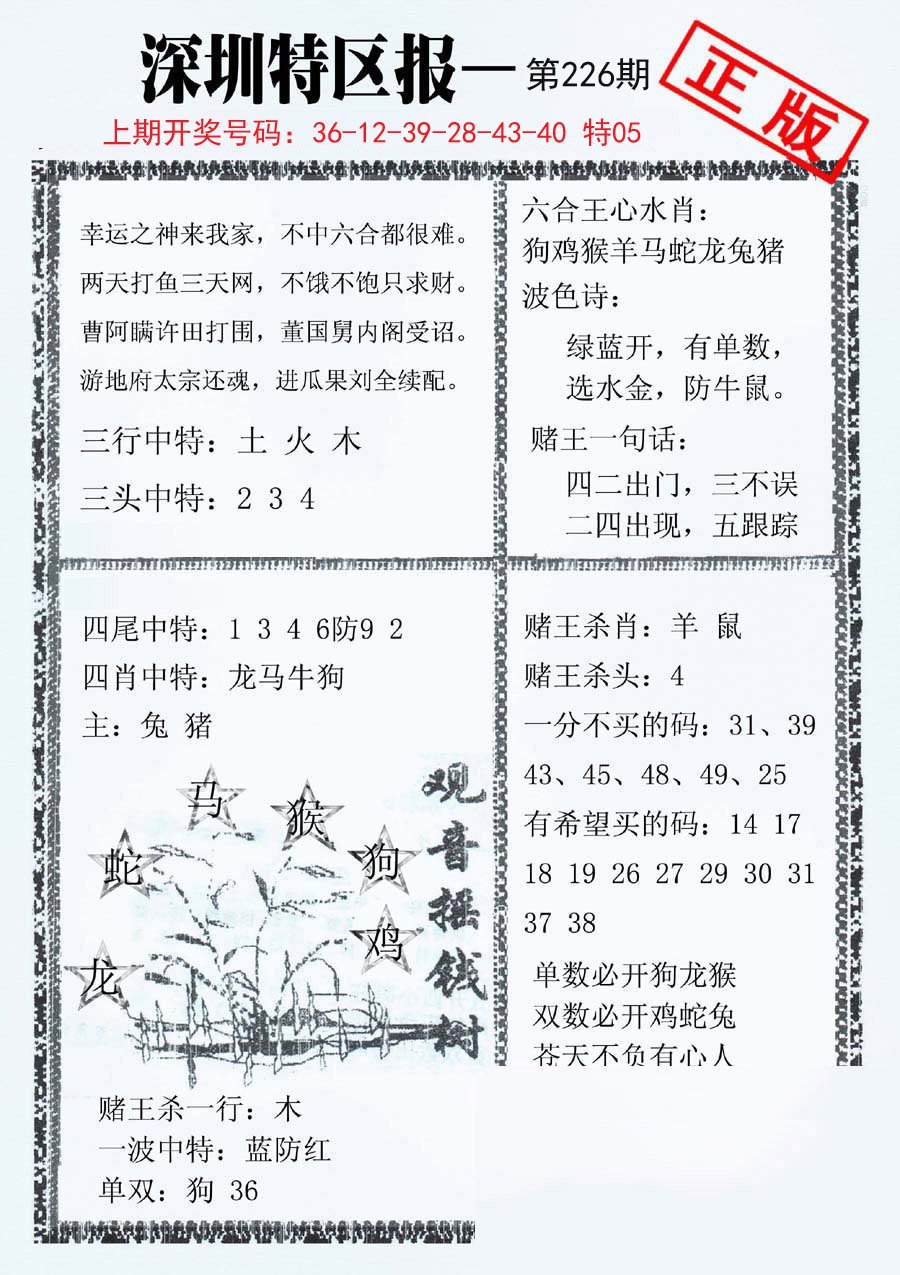 深圳特区报—第226期
正版
上期开奖号码：36-12-39-28-43-40 特05
幸运之神来我家，不中六合都很难。
两天打鱼三天网，不饿不饱只求财。
曹阿瞒许田打围，董国舅内阁受诏。
游地府太宗还魂，进瓜果刘全续配。
三行中特：土 火 木
三头中特：2 3 4
六合王心水肖：
狗鸡猴羊马蛇龙兔猪
波色诗：
绿蓝开，有单数，
选水金，防牛鼠。
赌王一句话：
四二出门，三不误
二四出现，五跟踪
四尾中特：1 3 4 6防9 2
四肖中特：龙马牛狗
主：兔 猪
马
猴
蛇
狗
鸡
龙
观音摇钱树
赌王杀一行：木
一波中特：蓝防红
单双：狗 36
赌王杀肖：羊 鼠
赌王杀头：4
一分不买的码：31、39
43、45、48、49、25
有希望买的码：14 17
18 19 26 27 29 30 31
37 38
单数必开狗龙猴
双数必开鸡蛇兔
苍天不负有心人